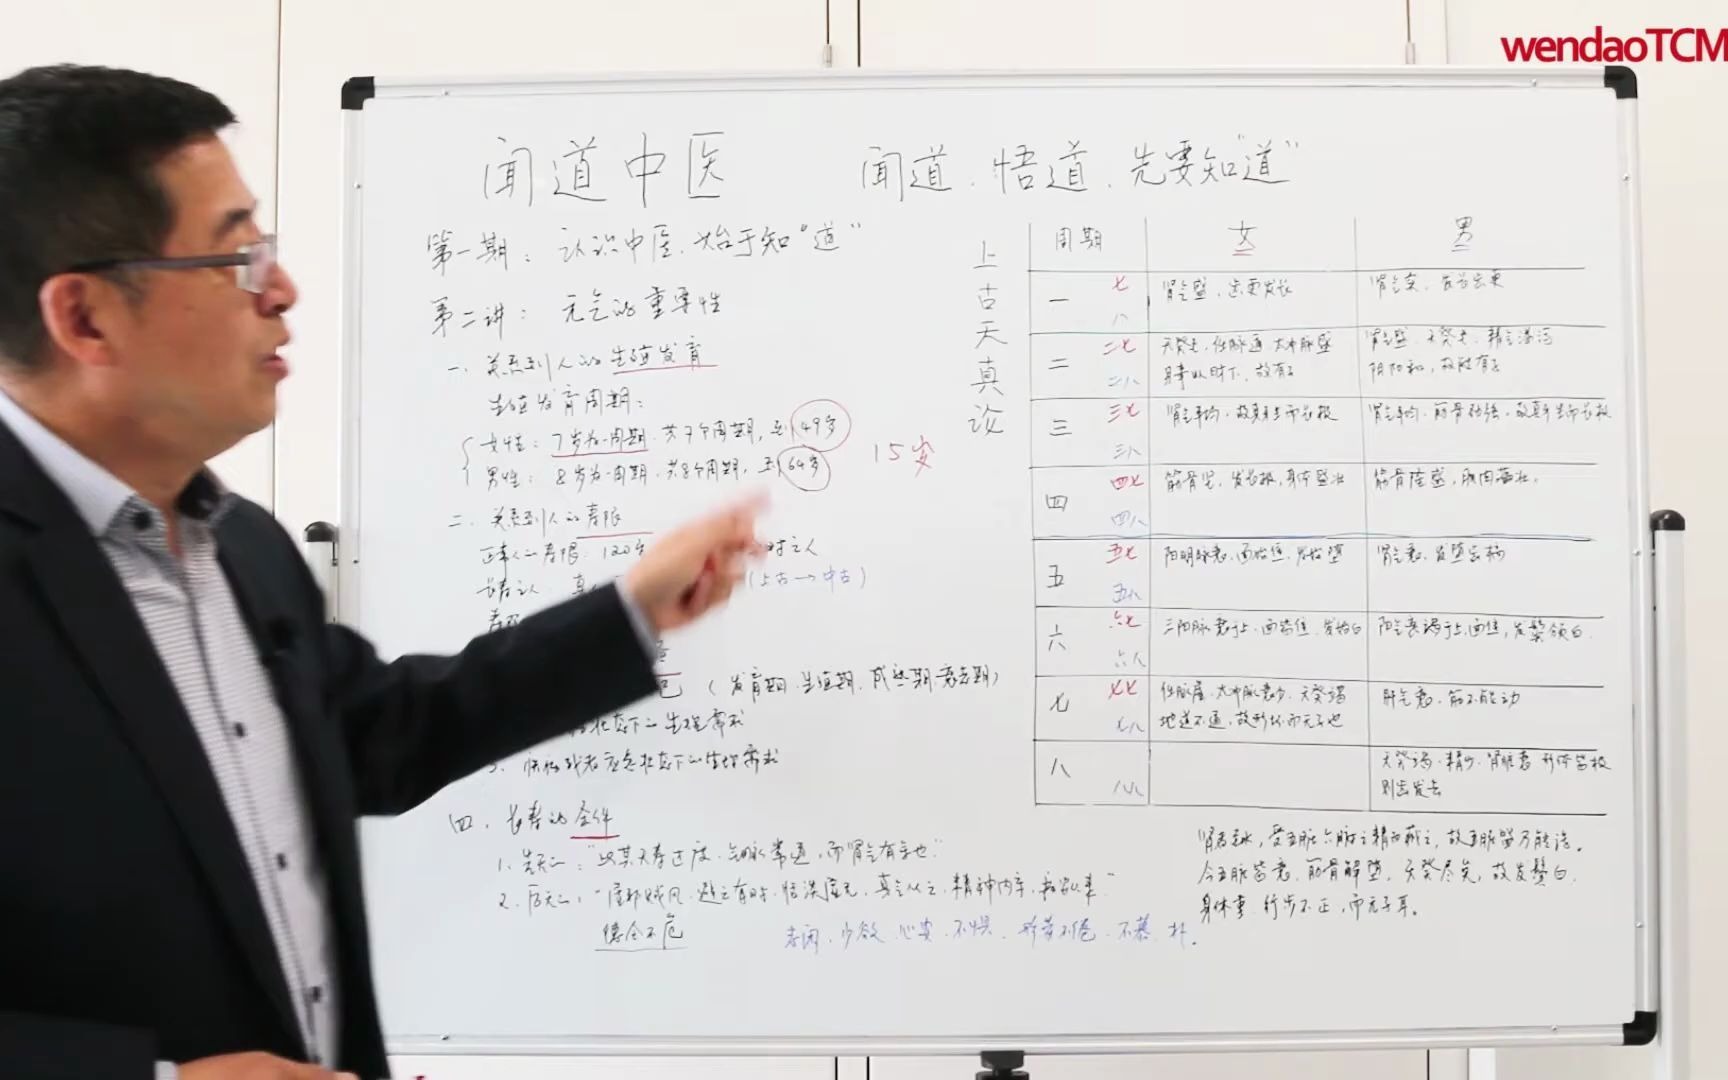 wendaoTCM
闻道中医
闻道、悟道、先要知"道"
第一期：认识中医、始于知"道"
第二讲：元气的重要性
一、关系到人的生殖发育
生殖发育周期：
女性：7岁为一周期，共7个周期，至49岁
男性：8岁为一周期，共8个周期，至64岁
15岁
二、关系到人的寿限
正常人的寿限：120岁
长寿之人：真
(上古→中古)
(发育期、生殖期、成熟期、衰老期)
状态下的生理需求
3、疾病或者应急状态下的生理需求
四、长寿的条件
1、先天：“此其天寿过度，气脉常通，而肾气有余也”
2、后天：“虚邪贼风，避之有时，恬淡虚无，真气从之，精神内守，病安从来”
德全不危
志闲、少欲、心安、不惧、形劳不倦、不慕、朴。
上古天真论
周期 女 男
一 七 八 肾气盛，齿更发长 肾气实，发长齿更
二 二七 二八 天癸至，任脉通，太冲脉盛 月事以时下，故有子 肾气盛，天癸至，精气溢泻 阴阳和，故能有子
三 三七 三八 肾气平均，故真牙生而长极 肾气平均，筋骨劲强，故真牙生而长极
四 四七 四八 筋骨坚，发长极，身体盛壮 筋骨隆盛，肌肉满壮。
五 五七 五八 阳明脉衰，面始焦，发始堕 肾气衰，发堕齿槁
六 六七 六八 三阳脉衰于上，面皆焦，发始白 阳气衰竭于上，面焦，发鬓颁白。
七 七七 七八 任脉虚，太冲脉衰少，天癸竭 地道不通，故形坏而无子也 肝气衰，筋不能动
八 八八 天癸竭，精少，肾脏衰，形体皆极 则齿发去
肾者主水，受五脏六腑之精而藏之，故五脏盛乃能泻。
今五脏皆衰，筋骨解堕，天癸尽矣，故发鬓白，
身体重，行步不正，而无子耳。